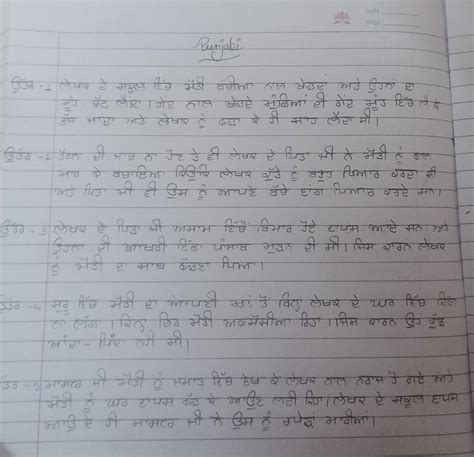 DATE
PAGE
Punjabi
ਉੱਤਰ - 1 ਲੇਖਕ ਦੇ ਸਕੂਲ ਵਿੱਚ ਮੋਤੀ ਬੱਚਿਆ ਨਾਲ ਖੇਡਦਾ ਅਤੇ ਉਹਨਾਂ ਦਾ
ਮੂੰਹ ਚੱਟ ਲੈਂਦਾ। ਗੇਂਦ ਨਾਲ ਖੇਡਦੇ ਮੁੰਡਿਆਂ ਦੀ ਗੇਂਦ ਮੂੰਹ ਵਿੱਚ ਲੈ ਕੇ
ਭੱਜ ਜਾਂਦਾ ਅਤੇ ਲੇਖਕ ਨੂੰ ਫੜਾ ਕੇ ਹੀ ਸਾਹ ਲੈਂਦਾ ਸੀ।
ਉੱਤਰ - 2 ਤੈਰਨ ਦੀ ਜਾਚ ਨਾ ਹੋਣ ਤੇ ਵੀ ਲੇਖਕ ਦੇ ਪਿਤਾ ਜੀ ਨੇ ਮੋਤੀ ਨੂੰ ਛਾਲ
ਮਾਰ ਕੇ ਬਚਾਇਆ ਕਿਉਂਕਿ ਲੇਖਕ ਕੁੱਤੇ ਨੂੰ ਬਹੁਤ ਪਿਆਰ ਕਰਦਾ ਸੀ
ਅਤੇ ਪਿਤਾ ਜੀ ਵੀ ਉਸ ਨੂੰ ਆਪਣੇ ਬੱਚੇ ਵਾਂਗ ਪਿਆਰ ਕਰਦੇ ਸਨ।
ਉੱਤਰ - 3 ਲੇਖਕ ਦੇ ਪਿਤਾ ਜੀ ਅਸਾਮ ਵਿੱਚੋਂ ਬਿਮਾਰ ਹੋਏ ਵਾਪਸ ਆਏ ਸਨ ਅਤੇ
ਉਹਨਾ ਦੀ ਆਖਰੀ ਇੱਛਾ ਪੰਜਾਬ ਮੁੜਨ ਦੀ ਸੀ। ਜਿਸ ਕਾਰਨ ਲੇਖਕ
ਨੂੰ ਮੋਤੀ ਦਾ ਸਾਥ ਛੱਡਣਾ ਪਿਆ।
ਉੱਤਰ - 4 ਸ਼ੁਰੂ ਵਿੱਚ ਮੋਤੀ ਦਾ ਆਪਣੀ ਮਾਂ ਤੋਂ ਬਿਨਾਂ ਲੇਖਕ ਦੇ ਘਰ ਵਿੱਚ ਦਿਲ
ਨਾ ਲੱਗਾ। ਕਿੰਨਾ ਚਿਰ ਮੋਤੀ ਅਣਮੰਨਿਆ ਰਿਹਾ। ਜਿਸ ਕਾਰਨ ਉਹ ਕੁੱਝ
ਖਾਂਦਾ - ਪਿੰਦਾ ਨਹੀ ਸੀ।
ਉੱਤਰ - 5 ਮਾਸਟਰ ਜੀ ਮੋਤੀ ਨੂੰ ਜਮਾਤ ਵਿੱਚ ਦੇਖ ਕੇ ਲੇਖਕ ਨਾਲ ਨਰਾਜ਼ ਹੋ ਗਏ ਅਤੇ
ਮੋਤੀ ਨੂੰ ਘਰ ਵਾਪਸ ਛੱਡ ਕੇ ਆਉਣ ਲਈ ਕਿਹਾ। ਲੇਖਕ ਦੇ ਸਕੂਲ ਵਾਪਸ
ਆਉਂਦੇ ਹੀ ਮਾਸਟਰ ਜੀ ਨੇ ਉਸ ਨੂੰ ਚਪੇੜਾਂ ਮਾਰੀਆਂ।